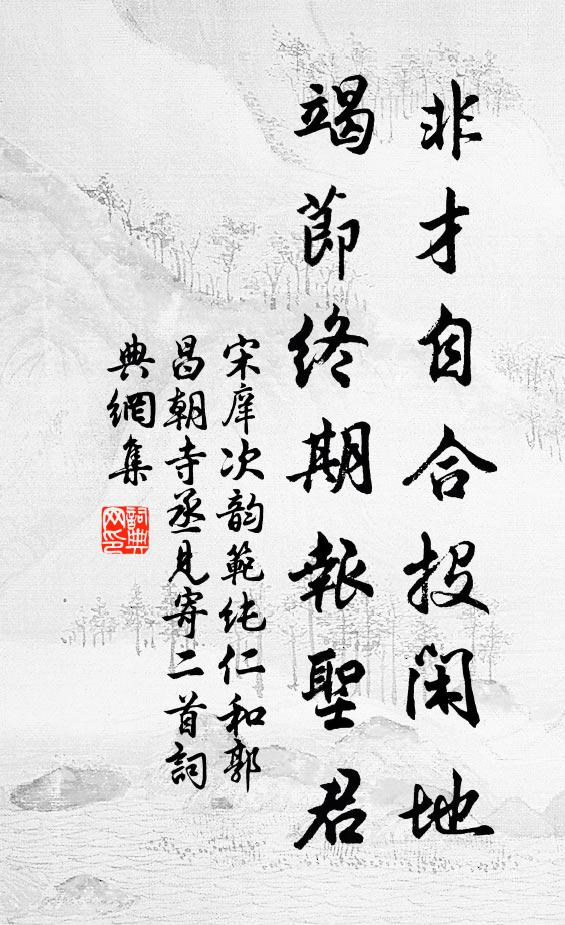 非才自合投閑地
竭節終期報聖君
宋庠次韵範純仁和郭
昌朝寺丞見寄二首詞
典網集
詞典
网印